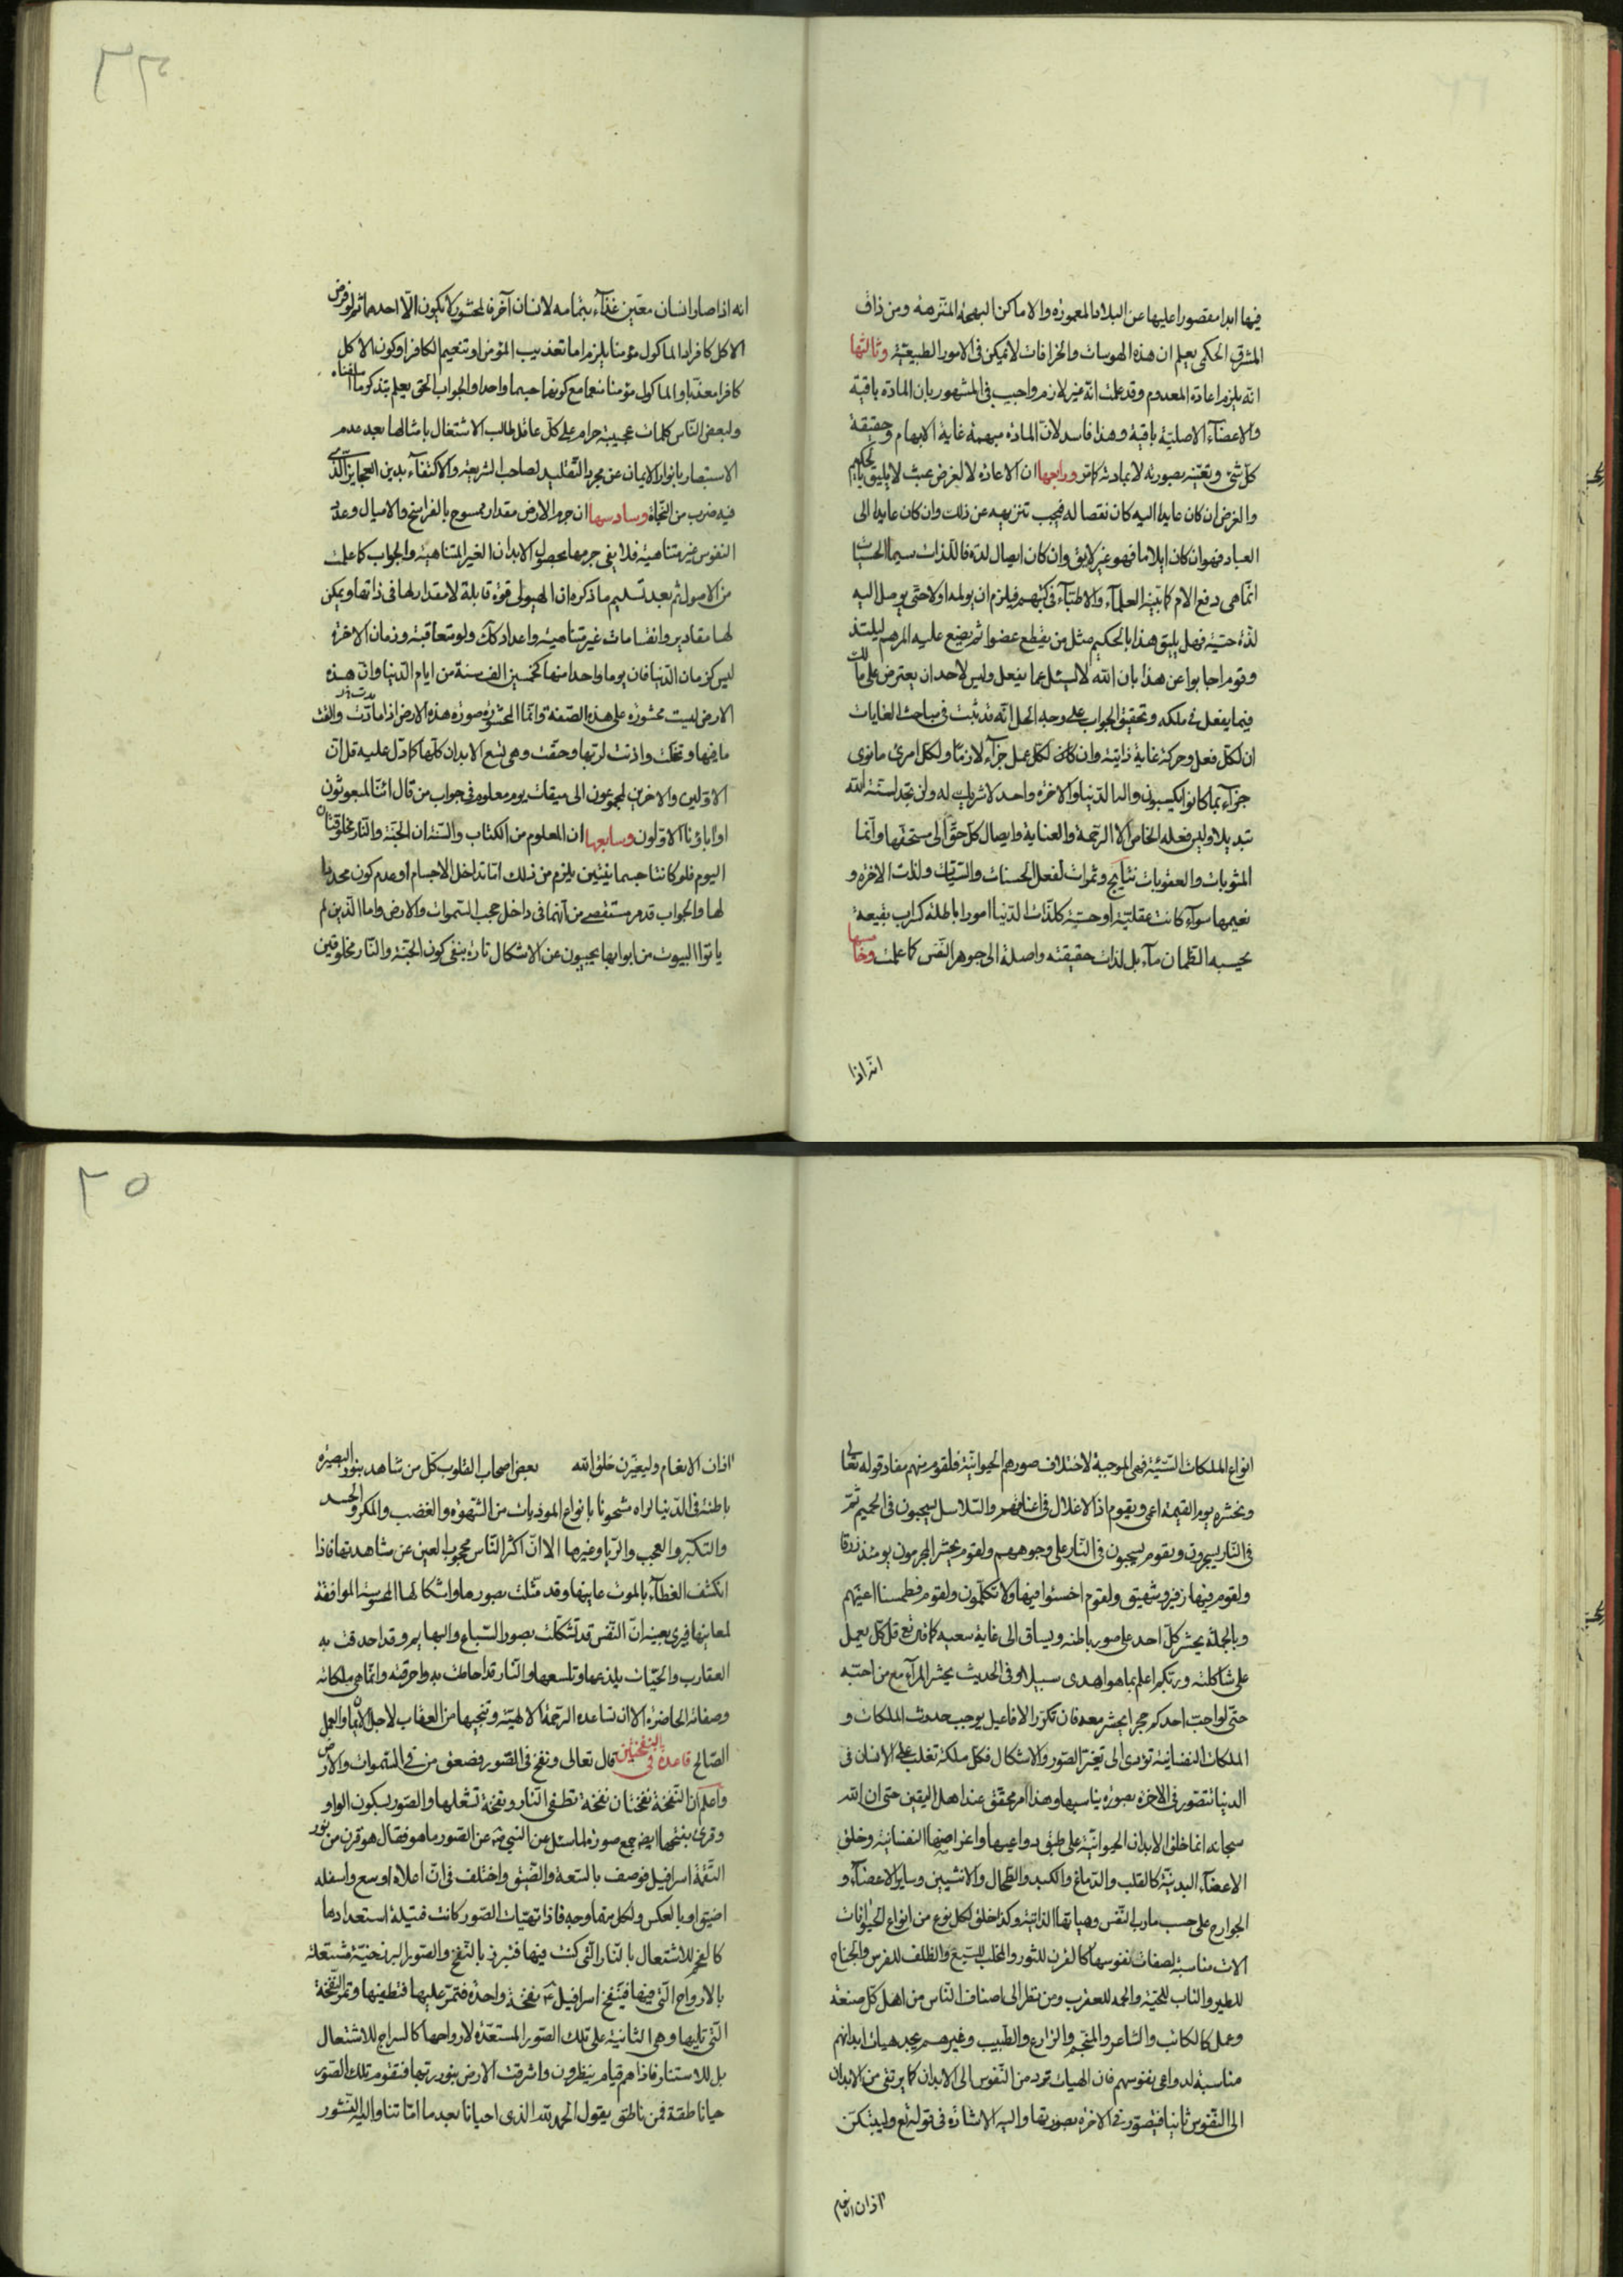 فيها ابدا مقصورا عليها عن البلاد المعمورة والاماكن البهجة المتنزهة ومن ذاق
المشرق الحكمى يعلم ان هذه الهوسات والخرافات لا تمكن فى الامور الطبيعية وثالثها
انه يلزم اعادة المعدوم وقد علمت انه غير لازم واجيب فى المشهور بان المادة باقية
والاعضآء الاصلية باقية وهذا فاسد لان المادة مبهمة غاية الابهام وحقيقة
كل شئ وتعينه بصورته لا بمادته كما مر ورابعها ان الاعادة لا لغرض عبث لا يليق بالحكيم
والغرض ان كان عايدا اليه كان نقصا له فيجب تنزيهه عن ذلك وان كان عايدا الى
العباد فهو ان كان ايلاما فهو غير لايق وان كان ايصال لذة فاللذات سيما الحسيات
انما هى دفع الالم كما بينه العلمآء والاطبآء فى كتبهم فيلزم ان يولمه اولا حتى يوصل اليه
لذة حسية فهل يليق هذا بالحكيم مثل من يقطع عضوا ثم يضع عليه المرهم ليلتذ
وقوم اجابوا عن هذا بان الله لا يسئل عما يفعل وليس لاحد ان يعترض على مالك
فيما يفعل فى ملكه وتحقيق الجواب على وجه الحل انه قد ثبت فى مباحث الغايات
ان لكل فعل وحركة غاية ذاتية وان كان لكل عمل جزآء لازما ولكل امرئ ما نوى
جزآء بما كانوا يكسبون واله الدنيا والاخرة واحد لا شريك له ولن تجد لسنة الله
تبديلا وليس فعله الخاص الا الرحمة والعناية وايصال كل حق الى مستحقها وانما
المثوبات والعقوبات نتايج وثمرات لفعل الحسنات والسيئات ولذات الاخرة و
نعيمها سوآء كانت عقلية او حسية كلذات الدنيا امورا باطلة كسراب بقيعة
يحسبه الظمان مآء بل لذات حقيقته واصلة الى جوهر النفس كما علمت وخامسها
انه اذا
انه اذا صار انسان معين غذآء بتمامه لانسان آخر فالمحشور لا يكون الا احدهما ثم لو فرض
الاكل كافرا والماكول مؤمنا يلزم اما تعذيب المؤمن او تنعيم الكافر او كون الاكل
كافرا معذبا والماكول مؤمنا منعما مع كونهما جسما واحدا والجواب الحق يعلم بتذكر ما اسلفناه
ولبعض الناس كلمات عجيبة حرام على كل عاقل طالب الاشتغال بامثالها بعد عدم
الاستبصار بانوار الايمان عن مجرد التقليد لصاحب الشريعة والاكتفآء بدين العجايز الذى
فيه ضرب من النجاة وسادسها ان جرم الارض مقدار ممسوح بالفراسخ والاميال وعدد
النفوس غير متناهية فلا يفى جرمها بحصول الابدان الغير المتناهية والجواب كما علمت
من الاصول ثم بعد تسليم ما ذكره ان الهيولى قوة قابلة لا مقدار لها فى ذاتها ويمكن
لها مقادير وانقسامات غير متناهية واعداد كذلك ولو متعاقبة وزمان الاخرة
ليس كزمان الدنيا فان يوما واحدا منها كخمسين الف سنة من ايام الدنيا وان هذه
الارض ليست محشورة على هذه الصفة وانما المحشورة صورة هذه الارض اذا مدت والقت
ما فيها وتخلت واذنت لربها وحقت وهى تسع الابدان كلها كما دل عليه قل ان
الاولين والاخرين لمجموعون الى ميقات يوم معلوم فى جواب من قال ائنا لمبعوثون
او اباؤنا الاولون وسابعها ان المعلوم من الكتاب والسنة ان الجنة والنار مخلوقتان
اليوم فلو كانتا جسمانيتين يلزم من ذلك اما تداخل الاجسام او عدم كون محدد
لها والجواب قدم مستقصى من انهما فى داخل حجب السموات والارض واما الذين لم
ياتوا البيوت من ابوابها يجيبون عن الاشكال تارة بنفى كون الجنة والنار مخلوقتين
انواع الملكات السيئة فهى الموجبة لاختلاف صورهم الحيوانية فلقوم منهم مفاد قوله تعالى
ونحشره يوم القيمة اعمى وبقوم اذ الاغلال فى اعناقهم والسلاسل يسحبون فى الحميم ثم
فى النار يسجرون وبقوم يسحبون فى النار على وجوههم ولقوم نحشر المجرمين يومئذ زرقا
ولقوم فيها زفير وشهيق ولقوم اخسئوا فيها ولا تكلمون ولقوم فطمسنا اعينهم
وبالجملة يحشر كل احد على صور باطنه ويساق الى غاية سعيه كما قال تع قل كل يعمل
على شاكلته وربكم اعلم بما هو اهدى سبيلا وفى الحديث يحشر المرآء مع من احبه
حتى لو احب احدكم حجرا يحشر معه فان تكرر الافاعيل يوجب حدوث الملكات و
الملكات النفسانية تؤدى الى تغير الصور والاشكال فكل ملكة تغلب على الانسان فى
الدنيا تتصور فى الاخرة بصورة يناسبها وهذا امر محقق عند اهل اليقين حتى ان الله
سبحانه انما خلق الابدان الحيوانية على طبق دواعيها واغراضها النفسانية وخلق
الاعضآء البدنية كالقلب والدماغ والكبد والطحال والانثيين وساير الاعضآء و
الجوارح على حسب مارب النفس وهياتها الذاتية وكذا خلق لكل نوع من انواع الحيوانات
الات مناسبة لصفات نفوسها كالقرن للثور والمخلب للسبع والظلف للفرس والجناح
للطير والناب للحية والحمه للعقرب ومن نظر الى اصناف الناس من اهل كل صنعة
وعمل كالكاتب والشاعر والمنجم والزارع والطبيب وغيرهم يجد هيات ابدانهم
مناسبة لدواعى نفوسهم فان الهيات ترد من النفوس الى الابدان كما يرتقى من الابدان
الى النفوس ثانيا فيتصور فى الاخرة بصورتها واليه الاشارة فى قوله تع وليبتكن
اذان الانعام
اذان الانعام وليغيرن خلق الله بعض اصحاب القلوب كل من شاهد بنور البصيرة
باطنه فى الدنيا لراه مشحونا بانواع الموذيات من الشهوة والغضب والمكر والحسد
والتكبر والعجب والريا وغيرها الا ان اكثر الناس محجوب العين عن مشاهدتها فاذا
انكشف الغطآء بالموت عاينها وقد مثلت بصورها واشكالها المحسوسة الموافقة
لمعانيها فيرى بعينه ان النفس قد تشكلت بصور السباع والبهايم وقد احدقت به
العقارب والحيات يلدغها وتلسعها والنار قد احاطت به واحرقته وانما هى ملكاته
وصفاته الحاضرة الا ان تساعده الرحمة الالهية وتنجيها من العقاب لاجل الايمان والعمل
الصالح قاعدة فى النفختين قال تعالى ونفخ فى الصور فصعق من فى السموات والارض
واعلم ان النفخة نفختان نفخة تطفى النار ونفخة تشعلها والصور بسكون الواو
وقرئ بفتحها ايضا جمع صورة لما سئل عن النبى ص عن الصور ما هو فقال هو قرن من نور
التقمه اسرافيل فوصف بالسعة والضيق واختلف فى ان اعلاه اوسع واسفله
اضيق او بالعكس ولكل منها وجه فاذا تهيات الصور كانت فتيلة استعدادها
كالفحم للاشتعال بالنار التى كمنت فيها فتبرز بالنفخ والصور البرزخية مشتعلة
بالارواح التى فيها فينفخ اسرافيل ع نفخة واحدة فتمر عليها فتطفيها وتمر النفخة
التى تليها وهى الثانية على تلك الصور المستعدة لارواحها كالسراج للاشتعال
بل للاستنار فاذا هم قيام ينظرون واشرقت الارض بنور ربها فتقوم تلك الصور
حيا ناطقة فمن ناطق يقول الحمد لله الذى احيانا بعد ما اماتنا واليه النشور
٢٥